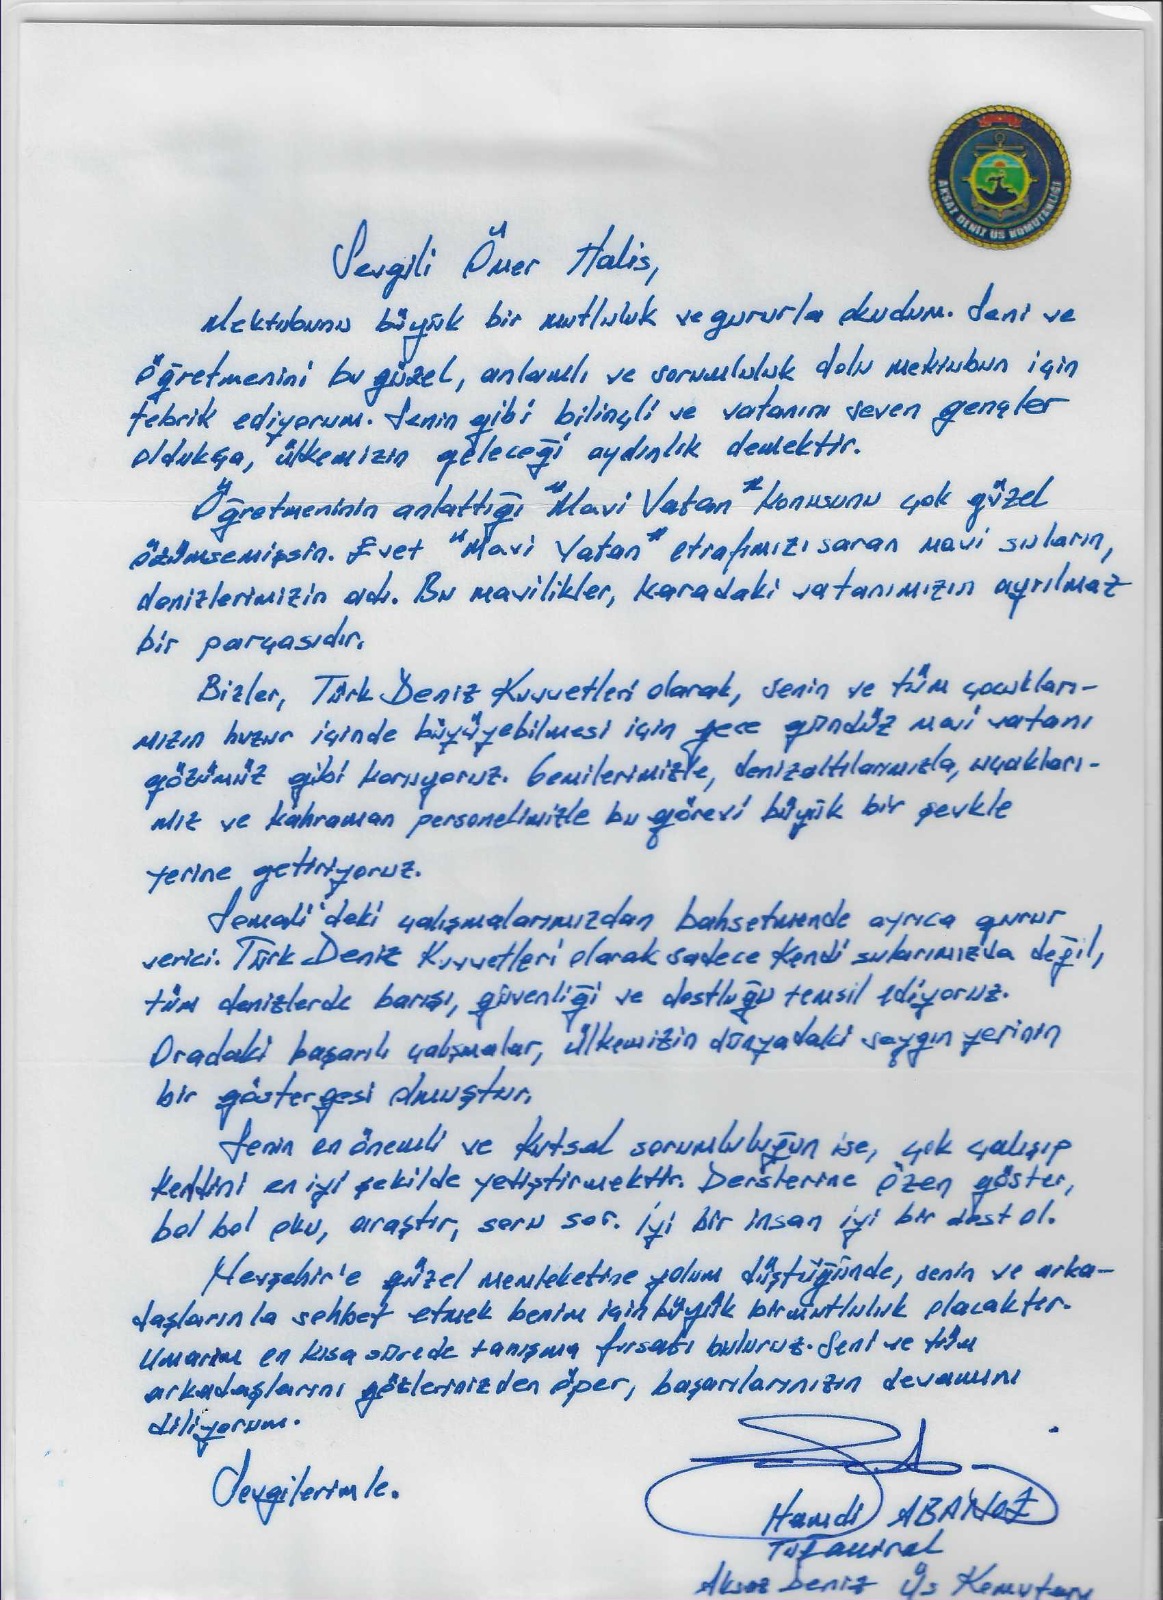 AKSAZ DENİZ ÜS KOMUTANLIĞI
Sevgili Ömer Halis,
Mektubunu büyük bir mutluluk ve gururla okudum. Seni ve
öğretmenini bu güzel, anlamlı ve sorumluluk dolu mektubun için
tebrik ediyorum. Senin gibi bilinçli ve vatanını seven gençler
oldukça, ülkemizin geleceği aydınlık demektir.
Öğretmeninin anlattığı "Mavi Vatan" konusunu çok güzel
özümsemişsin. Evet "Mavi Vatan" etrafımızı saran mavi suların,
denizlerimizin adı. Bu mavilikler, karadaki vatanımızın ayrılmaz
bir parçasıdır.
Bizler, Türk Deniz Kuvvetleri olarak, senin ve tüm çocukları-
mızın huzur içinde büyüyebilmesi için gece gündüz mavi vatanı
gözümüz gibi koruyoruz. Gemilerimizle, denizaltılarımızla, uçakları-
mız ve kahraman personelimizle bu görevi büyük bir şevkle
yerine getiriyoruz.
Somali'deki çalışmalarımızdan bahsetmende ayrıca gurur
verici. Türk Deniz Kuvvetleri olarak sadece kendi sularımızda değil,
tüm denizlerde barışı, güvenliği ve dostluğu temsil ediyoruz.
Oradaki başarılı çalışmalar, ülkemizin dünyadaki saygın yerinin
bir göstergesi olmuştur.
Senin en önemli ve kutsal sorumluluğun ise, çok çalışıp
kendini en iyi şekilde yetiştirmektir. Derslerine özen göster,
bol bol oku, araştır, soru sor. İyi bir insan iyi bir dost ol.
Nevşehir'e güzel memleketine yolum düştüğünde, senin ve arka-
daşlarınla sohbet etmek benim için büyük bir mutluluk olacaktır.
Umarım en kısa sürede tanışma fırsatı buluruz. Seni ve tüm
arkadaşlarını gözlerinizden öper, başarılarınızın devamını
diliyorum.
Sevgilerimle.
Hamdi ABANOZ
Tuğamiral
Aksaz Deniz Üs Komutanı